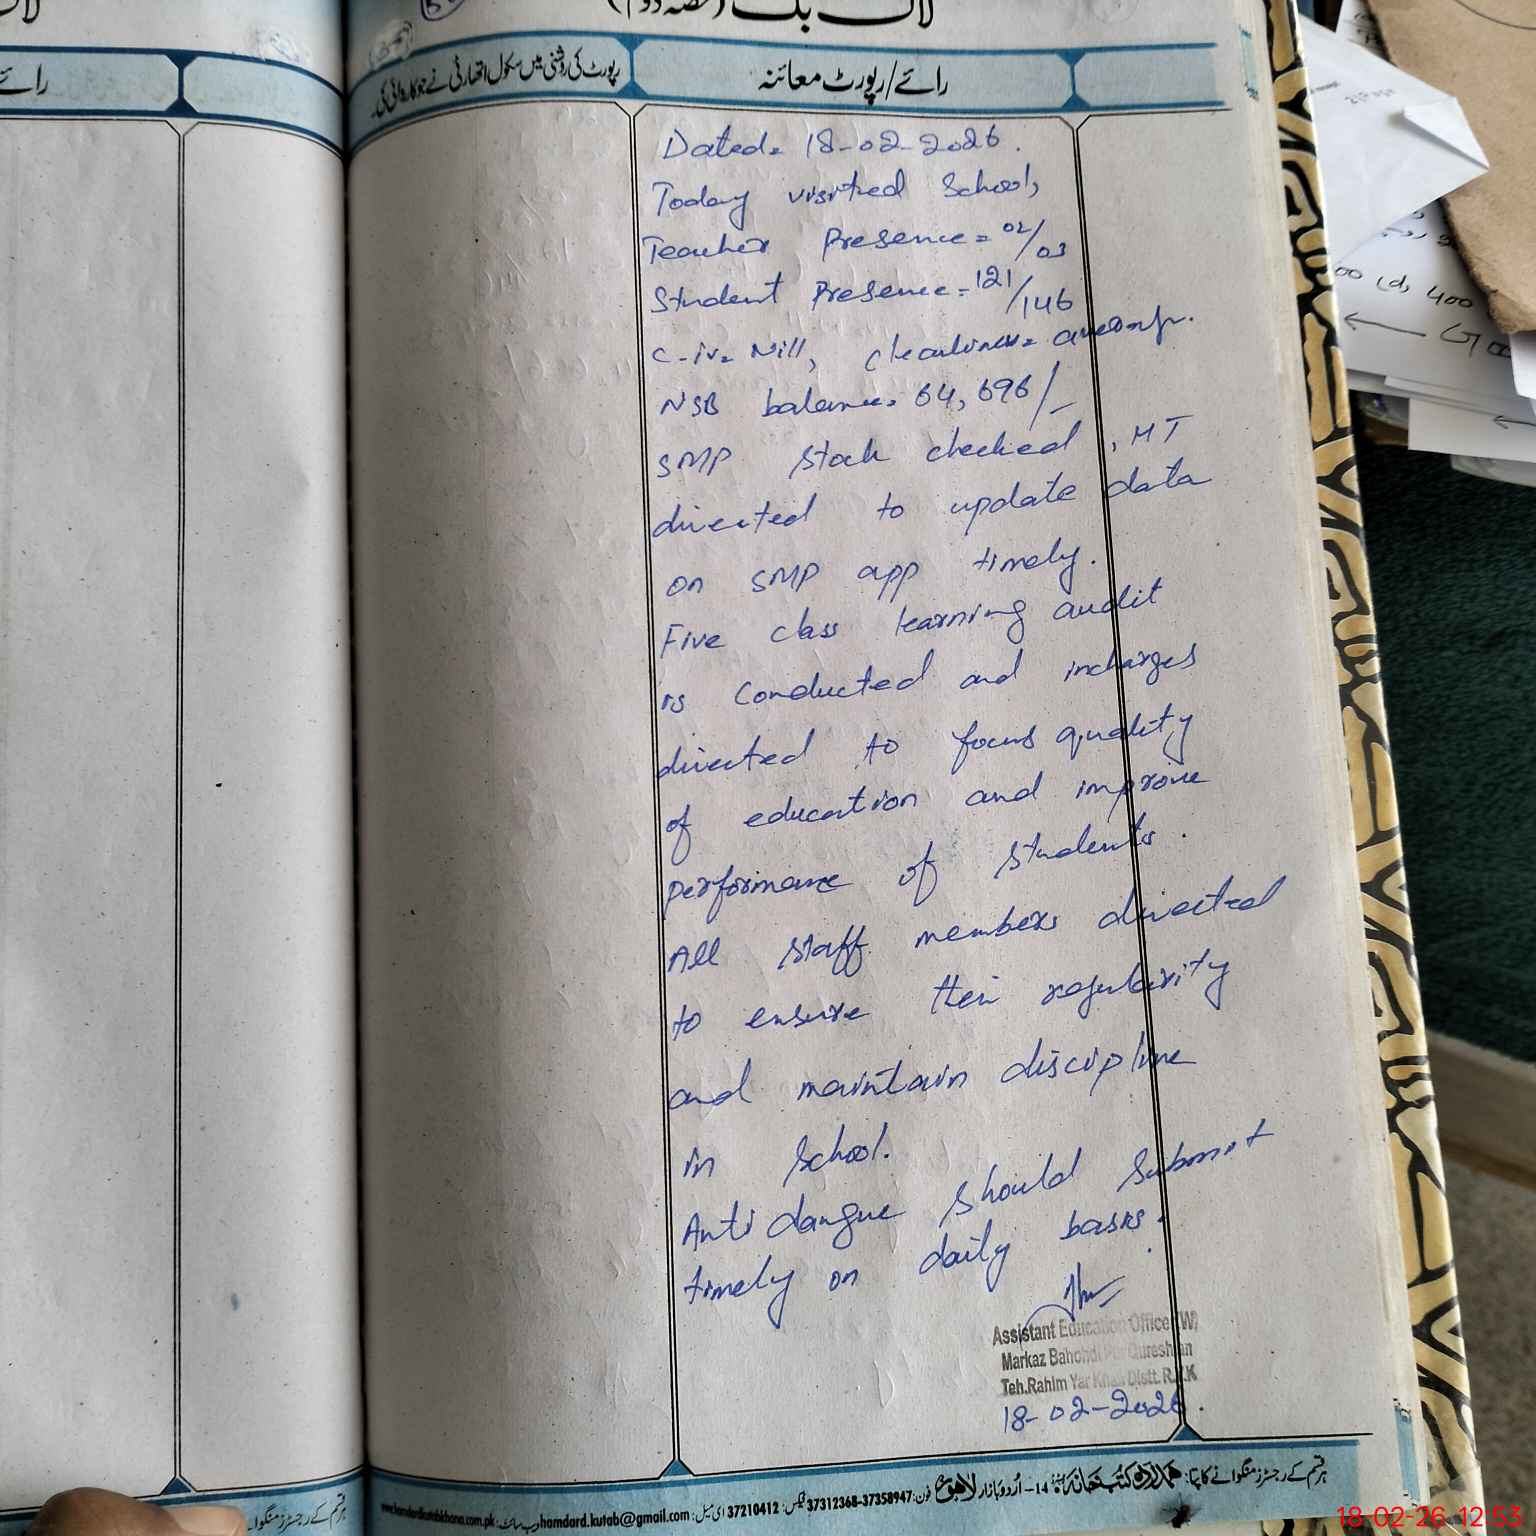 لاگ بک (حصہ دوم)
رائے
رپورٹ کی روشنی میں سکول اتھارٹی نے جو کاروائی کی۔
رائے/رپورٹ معائنہ
Dated= 18-02-2026.
Today visited School,
Teacher Presence= 02/03
Student Presence= 121/146
C-iv= Nill, cleanliness= average.
NSB balance= 64,696/-
SMP stock checked, HT
directed to update data
on SMP app timely.
Five class learning audit
is conducted and incharges
directed to focus quality
of education and improve
performance of students.
All staff members directed
to ensure their regularity
and maintain discipline
in School.
Anti dangue should submit
timely on daily basis.
Assistant Education Officer (W)
Markaz Bahondi Pur Qureshian
Teh.Rahim Yar Khan Distt. R.Y.K
18-02-2026.
ہر قسم کے رجسٹرز منگوانے کا پتا: ہمدرد کتب خانہ 14-اُردو بازار لاہور فون: 37312368-37358947 فیکس: 37210412 ای میل: hamdard.kutab@gmail.com ویب سائٹ: www.hamdardkutabkhana.com.pk
ہر قسم کے رجسٹرز منگوانے
400
18-02-26 12:53